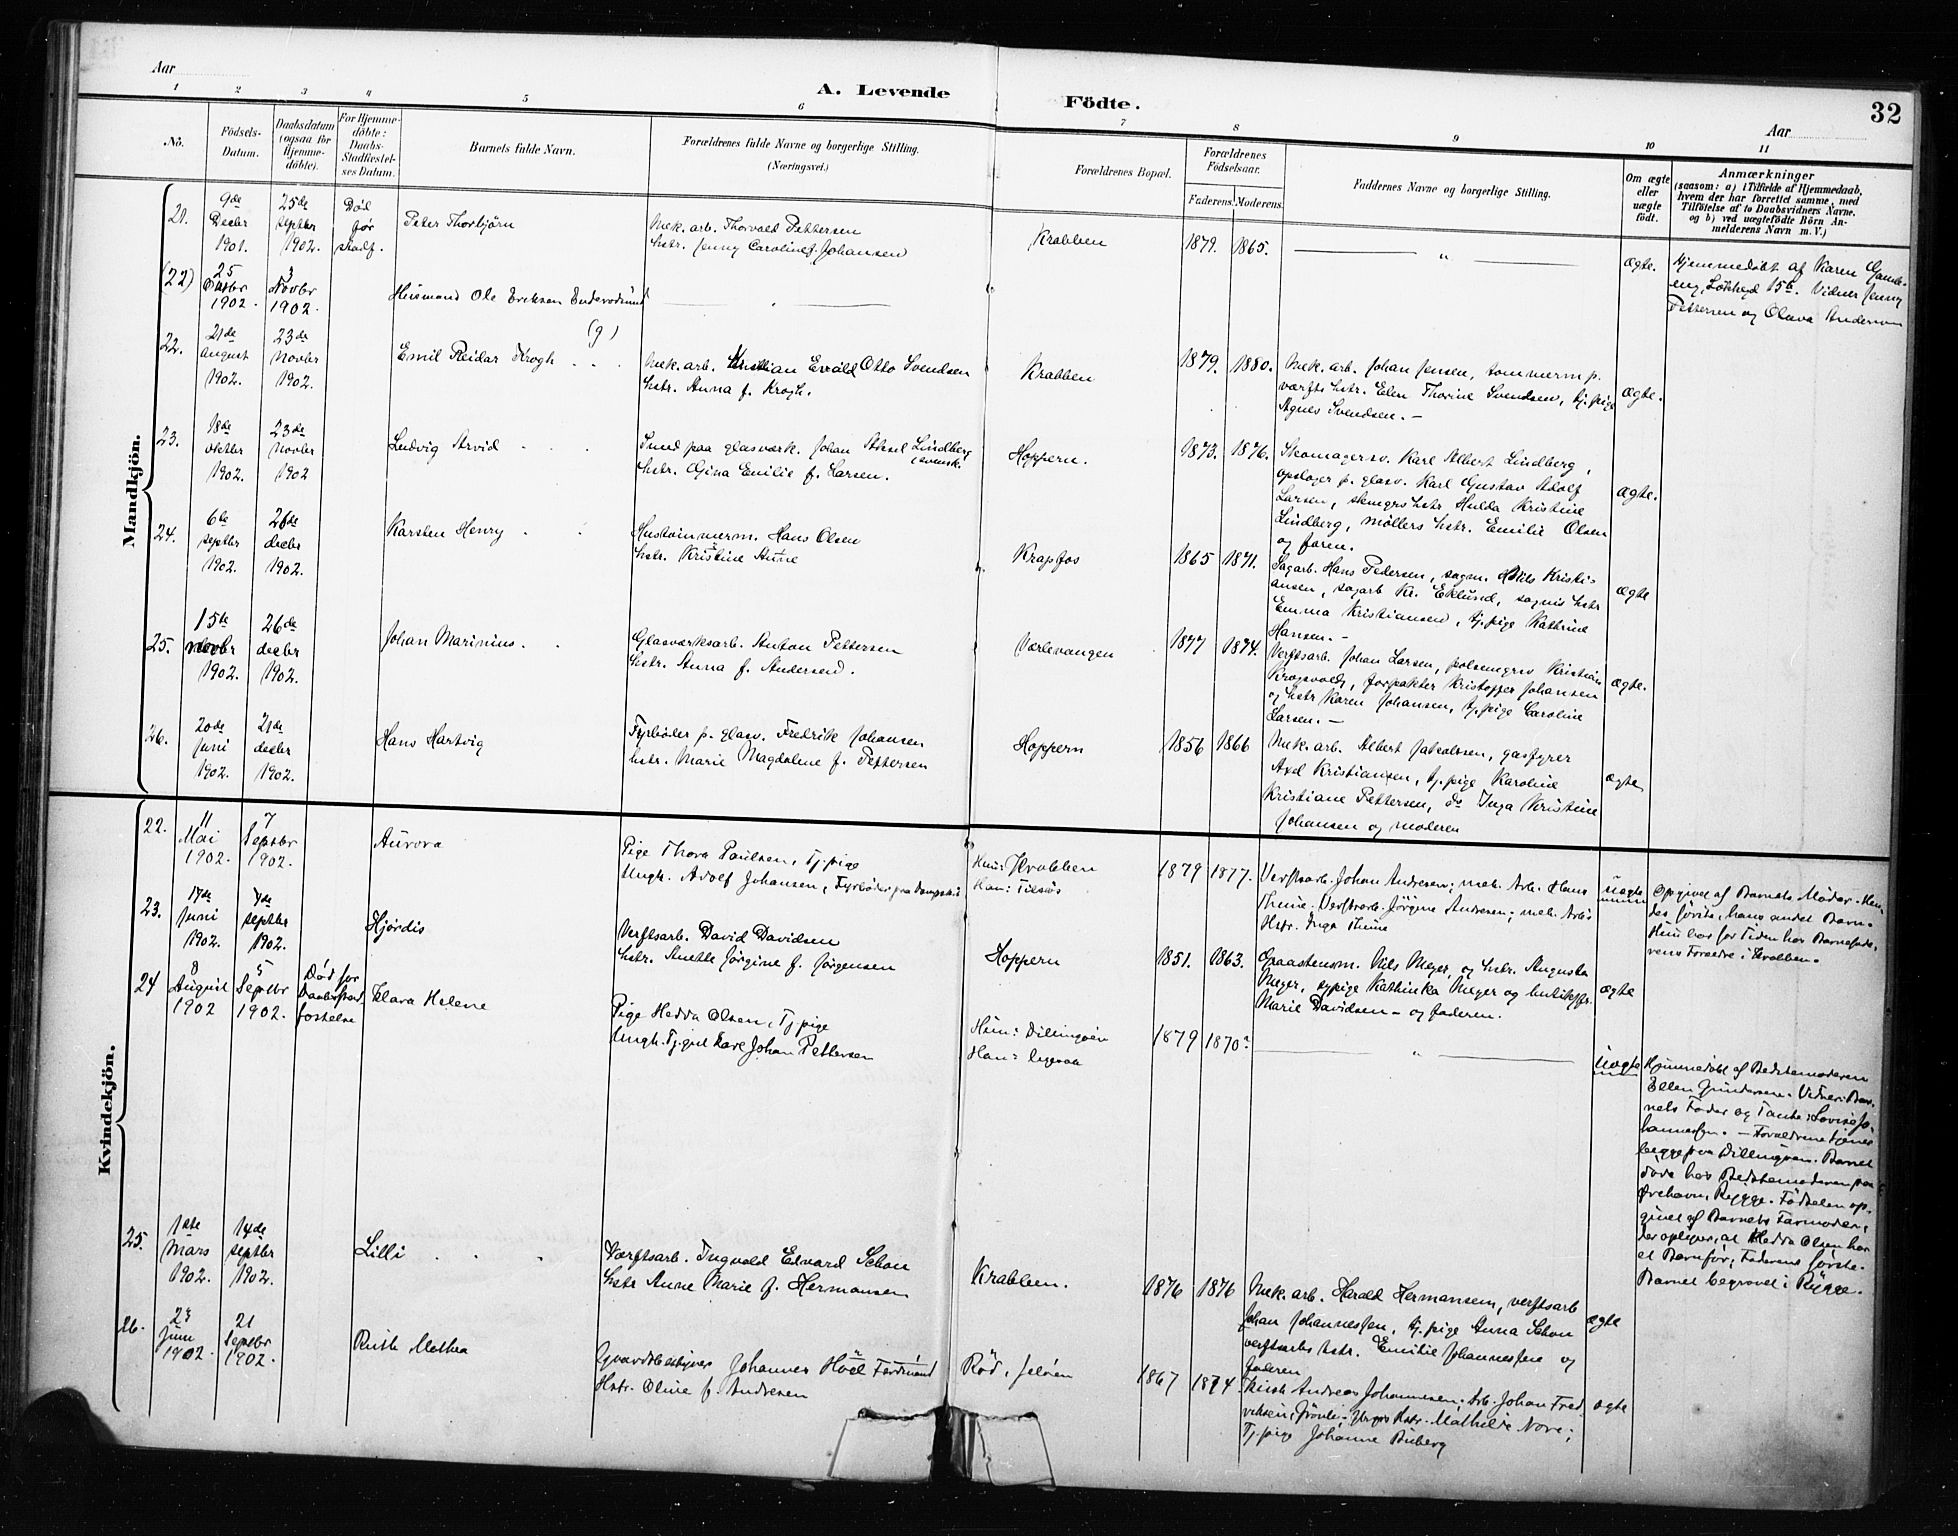 32
Aar
A. Levende Födte.
Aar
1 2 3 4 5 6 7 8 9 10 11
No.
Födsels-
Datum.
Daabsdatum
(ogsaa for
Hjemme-
döbte).
For Hjemme-
döbte:
Daabs-
Stadfæstel-
ses Datum.
Barnets fulde Navn.
Forældrenes fulde Navne og borgerlige Stilling.
(Næringsvei.)
Forældrenes Bopæl.
Forældrenes
Födselsaar.
Faderens. Moderens.
Faddernes Navne og borgerlige Stilling.
Om ægte
eller
uægte
födt.
Anmærkninger
(saasom: a) i Tilfælde af Hjemmedaab,
hvem der har forrettet samme, med
Tilföielse af to Daabsvidners Navne.
og b) ved uægtefödte Börn An-
melderens Navn m. V.)
Mandkjön.
21.
9de
Decbr
1901.
25de
septbr
1902.
Död
för
stadf.
Peter Thorbjörn
Mek. arb. Thorvald Pettersen
hstr. Jenny Caroline f. Johansen
Krabben
1879. 1865.
— " —
Ægte.
Hjemmedöbt af Karen
15de. Vidner Jenny
Pettersen og Olava Andersen
(22)
25
Oktbr
1902.
3
Novbr
1902.
Ole Eriksen
— " —
22.
21de
august
1902.
23de
Novbr
1902.
Emil Reidar Krogh (g)
Mek. arb. Kristian Otto Svendsen
hstr. Anna f. Krogh.
Krabben
1879. 1880.
Mek. arb. Johan Jensen, tommerm p.
værfts hstr. Elen Thorine Svendsen, tj. pige
Agnes Svendsen. —
Ægte.
23.
18de
oktbr
1902.
23de
Novbr
1902
Ludvig Arvid
Smed paa glasværk. Johan Lindberg
(svensk.
hstr. Gina Emilie f. Larsen.
Hoppern.
1873. 1876.
Skomagersv. Karl Albert Lindberg,
p. glasv. Karl Gustav Adolf
Larsen, hstr Hulda Kristine
Lindberg, möllers hstr. Emilie Olsen
og faren.
Ægte.
24.
6te
septbr
1902.
26de
decbr
1902.
Karsten Henry
Hustömmerm. Hans Olsen
hstr. Kristine Anne
Krapfos
1865 1871.
Sagarb. Hans Pedersen, sagm. Nils Kristi-
ansen, sagarb Kr. Eklund, hstr
Emma Kristiansen, tj. pige Kathrine
Hansen. —
Ægte
25.
15de
Novbr
1902.
26de
decbr
1902.
Johan Marinius.
Glasværksarb. Anton Pettersen
hstr. Anna f. Andersen.
Værlevangen
1877 1874.
Verftsarb. Johan Larsen, Kristian
forpakter Kristoffer Johansen
og hstr Karen Johansen, tj. pige Caroline
Larsen. —
Ægte.
26.
20de
Juni
1902.
21de
decbr
1902.
Hans Hartvig
Fyrböder p. glasv. Fredrik Johansen
hstr. Marie Magdalene f. Pettersen
Hoppern
1856 1866
Mek. arb. Albert Jakobsen, gasfyrer
Axel Kristiansen, tj. pige Karoline
Kristiane Pettersen, do Inga Kristine
Johansen og moderen
ægte
Kvindekjön.
22.
11
Mai
1902.
7
Septbr
1902.
Aurora
Pige Thora Paulsen, Tj. pige
Ungk. Adolf Johansen, Fyrböder paa
Hun: Krabben
Han:
1879 1877.
Verftsarb. Johan Andresen; mek. Arb. Hans
Thune. Verftsarb. Jörgine Andresen; mek. Arb's
Hstr. Inga Thune
uægte
Opgivet af Barnets Moder. Hen-
des förste, hans andet Barn.
Hun bor for Tiden hos Barnefade-
rens Foræ­ldre i Krabben.
23.
17de
Juni
1902.
7de
septbr
1902.
Hjördis
Verftsarb. David Davidsen
hstr. Anette Jörgine f. Jörgensen
Hoppern
1851. 1863.
Graastensm. Nils Meyer, og hstr. Augusta
Meyer, sypige Kathinka Meyer og
Marie Davidsen — og faderen.
ægte
24
8
August
1902
5
Septbr
1902.
Död för
Daabsstad-
fæstelse
Klara Helene
Pige Hedda Olsen, Tj. pige
Ungk. Tj. gut Karl Johan Pettersen
Hun: Dillingöen
Han:
1879 1870?
— " —
uægte
Hjemmedöbt af Bedstemoderen
Ellen Gundersen. Vidner: Bar-
nets Fader og Tante: Lovise Jo-
hannessen. — Forældrene tjener
begge paa Dillingöen. Barnet
döde hos Bedstemoderen paa
Örehavn, Rygge. Födselen op-
givet af Barnets Farmoder,
der oplyser, at Hedda Olsen har
et Barn för; Faderens förste.
Barnet begravet i Rygge.
25.
1ste
Mars
1902.
14de
septbr
1902.
Lilli
Værftsarb. Ingvald Edvard Schou
hstr Anne Marie f. Hermansen
Krabben.
1876 1876
Mek. arb. Harald Hermansen, verftsarb
Johan Johannessen, tj. pige Anna Schou
verftsarbs hstr. Emilie Johannessen og
faderen
ægte
26.
23
Juni
1902.
21
Septbr
1902.
Ruth Mathea
Gaardsbestyrer Johannes Höel Ferdinand
Hstr. Oline f. Andresen
Röd, Jelöen
1867 1874
Andreas Johannesen; Arb. Johan Fred-
riksen, Hstr. Mathilde Nore;
Tj. pige Johanne Buberg
ægte